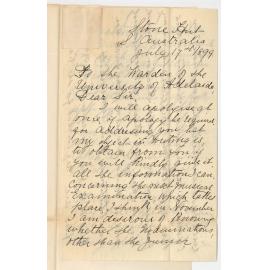 Stone Hut
Australia
July 17th/1899
To the Warden of the
University of Adelaide
Dear Sir,
I will apologise at
once if apology be required
for addressing you but
my object in writing is
to obtain from you if
you will kindly give it
all the information I can
concerning the next musical
examination which takes
place I think in November
I am desirous of knowing
whether the examinations
other than the junior